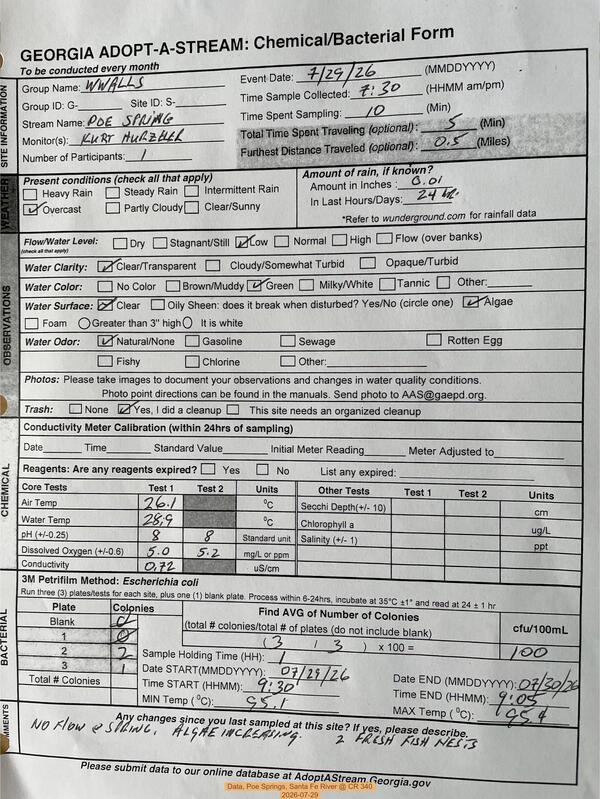 GEORGIA ADOPT-A-STREAM: Chemical/Bacterial Form
To be conducted every month
SITE INFORMATION
Group Name: WWALLS
Group ID: G- Site ID: S-
Stream Name: POE SPRING
Monitor(s): KURT
Number of Participants: 1
Event Date: 7/29/26 (MMDDYYYY)
Time Sample Collected: 7:30 (HHMM am/pm)
Time Spent Sampling: 10 (Min)
Total Time Spent Traveling (optional): 5 (Min)
Furthest Distance Traveled (optional): 0.5 (Miles)
WEATHER
Present conditions (check all that apply)
Heavy Rain Steady Rain Intermittent Rain
Overcast Partly Cloudy Clear/Sunny
Amount of rain, if known?
Amount in Inches: 0.01
In Last Hours/Days: 24 hr.
*Refer to wunderground.com for rainfall data
OBSERVATIONS
Flow/Water Level: Dry Stagnant/Still Low Normal High Flow (over banks)
(check all that apply)
Water Clarity: Clear/Transparent Cloudy/Somewhat Turbid Opaque/Turbid
Water Color: No Color Brown/Muddy Green Milky/White Tannic Other:
Water Surface: Clear Oily Sheen: does it break when disturbed? Yes/No (circle one) Algae
Foam Greater than 3" high It is white
Water Odor: Natural/None Gasoline Sewage Rotten Egg
Fishy Chlorine Other:
Photos: Please take images to document your observations and changes in water quality conditions.
Photo point directions can be found in the manuals. Send photo to AAS@gaepd.org.
Trash: None Yes, I did a cleanup This site needs an organized cleanup
CHEMICAL
Conductivity Meter Calibration (within 24hrs of sampling)
Date Time Standard Value Initial Meter Reading Meter Adjusted to
Reagents: Are any reagents expired? Yes No List any expired:
Core Tests Test 1 Test 2 Units Other Tests Test 1 Test 2 Units
Air Temp 26.1 °C Secchi Depth(+/- 10) cm
Water Temp 28.9 °C Chlorophyll a ug/L
pH (+/-0.25) 8 8 Standard unit Salinity (+/- 1) ppt
Dissolved Oxygen (+/-0.6) 5.0 5.2 mg/L or ppm
Conductivity 0.72 uS/cm
BACTERIAL
3M Petrifilm Method: Escherichia coli
Run three (3) plates/tests for each site, plus one (1) blank plate. Process within 6-24hrs, incubate at 35°C ±1° and read at 24 ± 1 hr
Plate Colonies
Blank 0
1 0
2 2
3 1
Total # Colonies
Find AVG of Number of Colonies
(total # colonies/total # of plates (do not include blank) cfu/100mL
(3 / 3) x 100 = 100
Sample Holding Time (HH): 1
Date START(MMDDYYYY): 07/29/26 Date END (MMDDYYYY): 07/30/26
Time START (HHMM): 9:30 Time END (HHMM): 9:05
MIN Temp (°C): 95.1 MAX Temp (°C): 95.4
MMENTS
Any changes since you last sampled at this site? If yes, please describe.
NO FLOW @ SPRING. ALGAE INCREASING. 2 FRESH FISH NESTS
Please submit data to our online database at AdoptAStream.Georgia.gov
Data, Poe Springs, Santa Fe River @ CR 340
2026-07-29